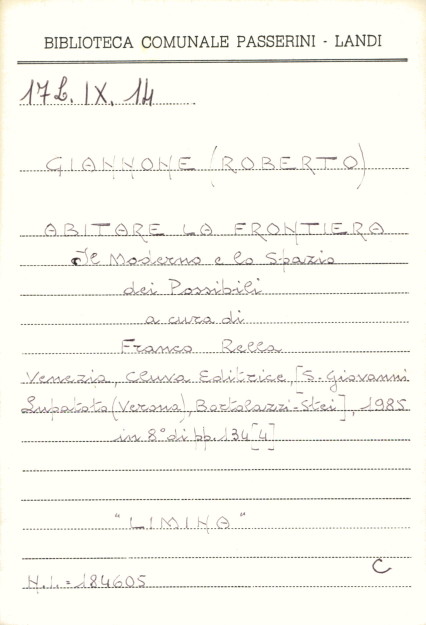 BIBLIOTECA COMUNALE PASSERINI - LANDI
17L. IX. 14
GIANNONE (ROBERTO)
ABITARE LA FRONTIERA
Il Moderno e lo Spazio
dei Possibili
a cura di
Franco Rella
Venezia, Cluva Editrice, [S. Giovanni
Lupatoto (Verona), Bortolazzi-Stei], 1985
in 8° di pp. 134[4]
"LIMINA"
C
N.I. = 184605